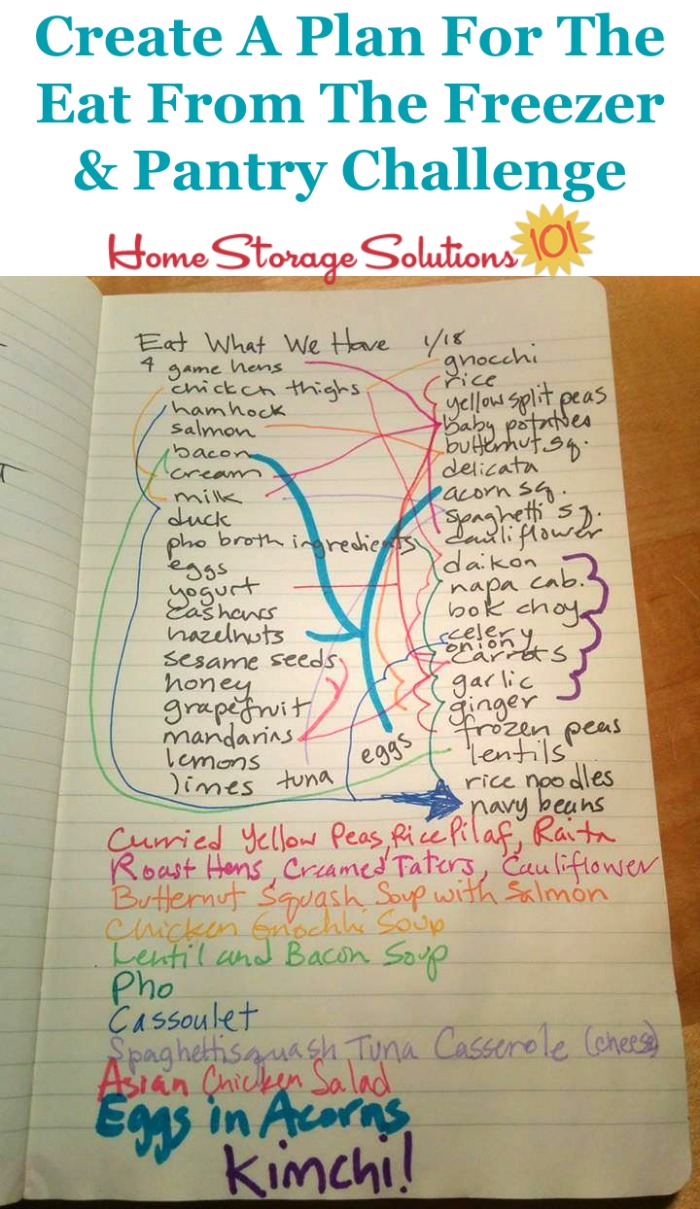 Create A Plan For The
Eat From The Freezer
& Pantry Challenge
Home Storage Solutions 101
Eat What We Have 1/18
4 game hens
chicken thighs
hamhock
salmon
bacon
cream
milk
duck
pho broth ingredients
eggs
yogurt
cashews
hazelnuts
sesame seeds
honey
grapefruit
mandarins
lemons
limes tuna eggs
gnocchi
rice
yellow split peas
baby potatoes
butternut sq.
delicata
acorn sq.
spaghetti sq.
cauliflower
daikon
napa cab.
bok choy
celery
onion
carrots
garlic
ginger
frozen peas
lentils
rice noodles
navy beans
Curried Yellow Peas, Rice Pilaf, Raita
Roast Hens, Creamed Taters, Cauliflower
Butternut Squash Soup with Salmon
Chicken Gnochhi Soup
Lentil and Bacon Soup
Pho
Cassoulet
Spaghettisquash Tuna Casserole (cheese)
Asian Chicken Salad
Eggs in Acorns
Kimchi!